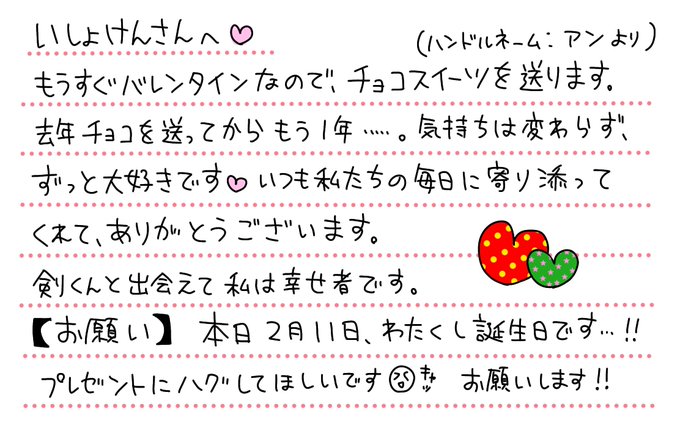 いしょけんさんへ♡
(ハンドルネーム：アンより)
もうすぐバレンタインなので、チョコスイーツを送ります。
去年チョコを送ってからもう1年……。気持ちは変わらず、
ずっと大好きです♡いつも私たちの毎日に寄り添って
くれて、ありがとうございます。
剣くんと出会えて私は幸せ者です。
【お願い】 本日2月11日、わたくし誕生日です…!!
プレゼントにハグしてほしいです キャッ お願いします!!